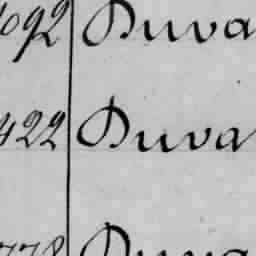 092 Duva
422 Duva
778 Duva